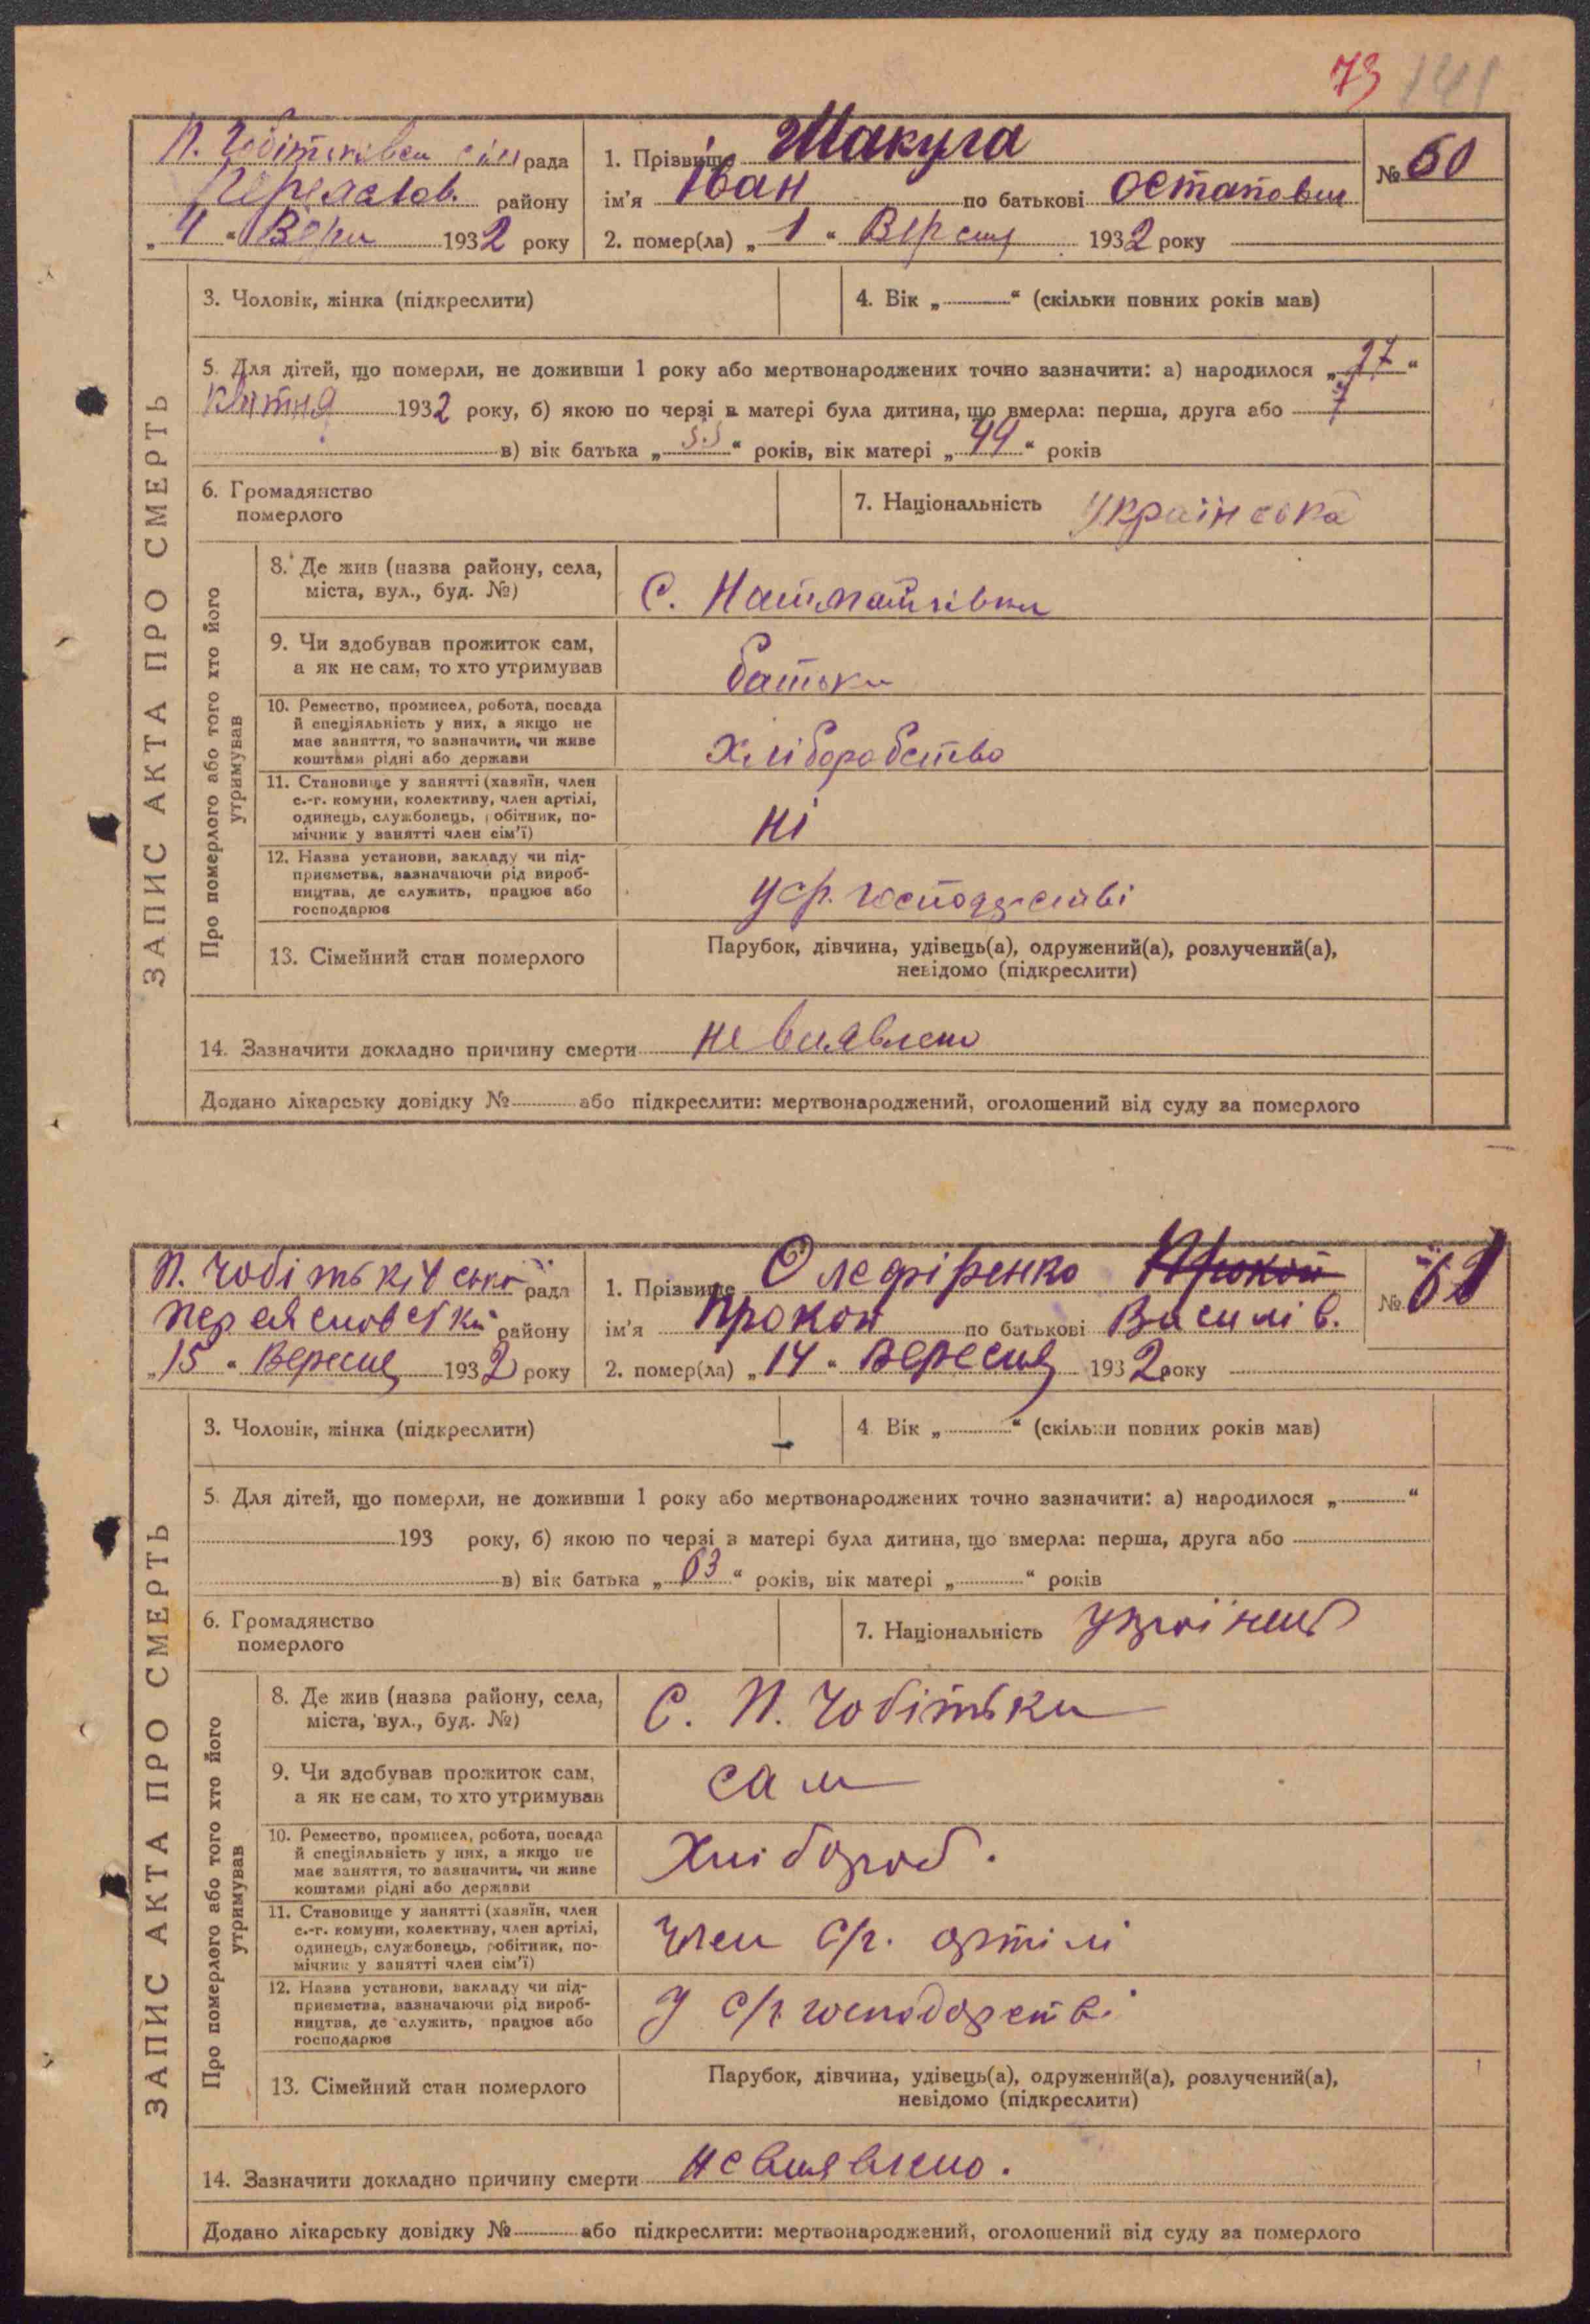 73 141
П. Чобітьківсь сіль рада
Переяслав. району
„4“ Верес 1932 року
1. Прізвище Шакула
ім'я Іван по батькові Остапович
№ 60
2. помер(ла) „1“ Вересня 1932 року
ЗАПИС АКТА ПРО СМЕРТЬ
3. Чоловік, жінка (підкреслити)
4. Вік „ “ (скільки повних років мав)
5. Для дітей, що померли, не доживши 1 року або мертвонароджених точно зазначити: а) народилося „27“
Квітня 1932 року, б) якою по черзі в матері була дитина, що вмерла: перша, друга або 7
в) вік батька „55“ років, вік матері „44“ років
6. Громадянство
померлого
7. Національність Українська
Про померлого або того хто його
утримував
8. Де жив (назва району, села,
міста, вул., буд. №)
С.
9. Чи здобував прожиток сам,
а як не сам, то хто утримував
батьки
10. Ремество, промисел, робота, посада
й спеціяльність у них, а якщо не
має заняття, то зазначити, чи живе
коштами рідні або держави
Хліборобство
11. Становище у занятті (хазяїн, член
с.-г. комуни, колективу, член артілі,
одинець, службовець, робітник, по-
мічник у занятті член сім'ї)
ні
12. Назва установи, закладу чи під-
приємства, зазначаючи рід вироб-
ництва, де служить, працює або
господарює
у с/г. господарстві
13. Сімейний стан померлого
Парубок, дівчина, удівець(а), одружений(а), розлучений(а),
невідомо (підкреслити)
14. Зазначити докладно причину смерти не виявлено
Додано лікарську довідку № або підкреслити: мертвонароджений, оголошений від суду за померлого
П. Чобітьківської рада
Переяславський району
„15“ Вересня 1932 року
1. Прізвище Олефіренко Прокоп
ім'я Прокоп по батькові Василів.
№ 61
2. помер(ла) „14“ Вересня 1932 року
ЗАПИС АКТА ПРО СМЕРТЬ
3. Чоловік, жінка (підкреслити)
4. Вік „ “ (скільки повних років мав)
5. Для дітей, що померли, не доживши 1 року або мертвонароджених точно зазначити: а) народилося „ “
193 року, б) якою по черзі в матері була дитина, що вмерла: перша, друга або
в) вік батька „63“ років, вік матері „ “ років
6. Громадянство
померлого
7. Національність українець
Про померлого або того хто його
утримував
8. Де жив (назва району, села,
міста, вул., буд. №)
С. П. Чобітьки
9. Чи здобував прожиток сам,
а як не сам, то хто утримував
сам
10. Ремество, промисел, робота, посада
й спеціяльність у них, а якщо не
має заняття, то зазначити, чи живе
коштами рідні або держави
Хлібороб.
11. Становище у занятті (хазяїн, член
с.-г. комуни, колективу, член артілі,
одинець, службовець, робітник, по-
мічник у занятті член сім'ї)
член с/г. артілі
12. Назва установи, закладу чи під-
приємства, зазначаючи рід вироб-
ництва, де служить, працює або
господарює
у с/г. господарстві
13. Сімейний стан померлого
Парубок, дівчина, удівець(а), одружений(а), розлучений(а),
невідомо (підкреслити)
14. Зазначити докладно причину смерти не виявлено.
Додано лікарську довідку № або підкреслити: мертвонароджений, оголошений від суду за померлого